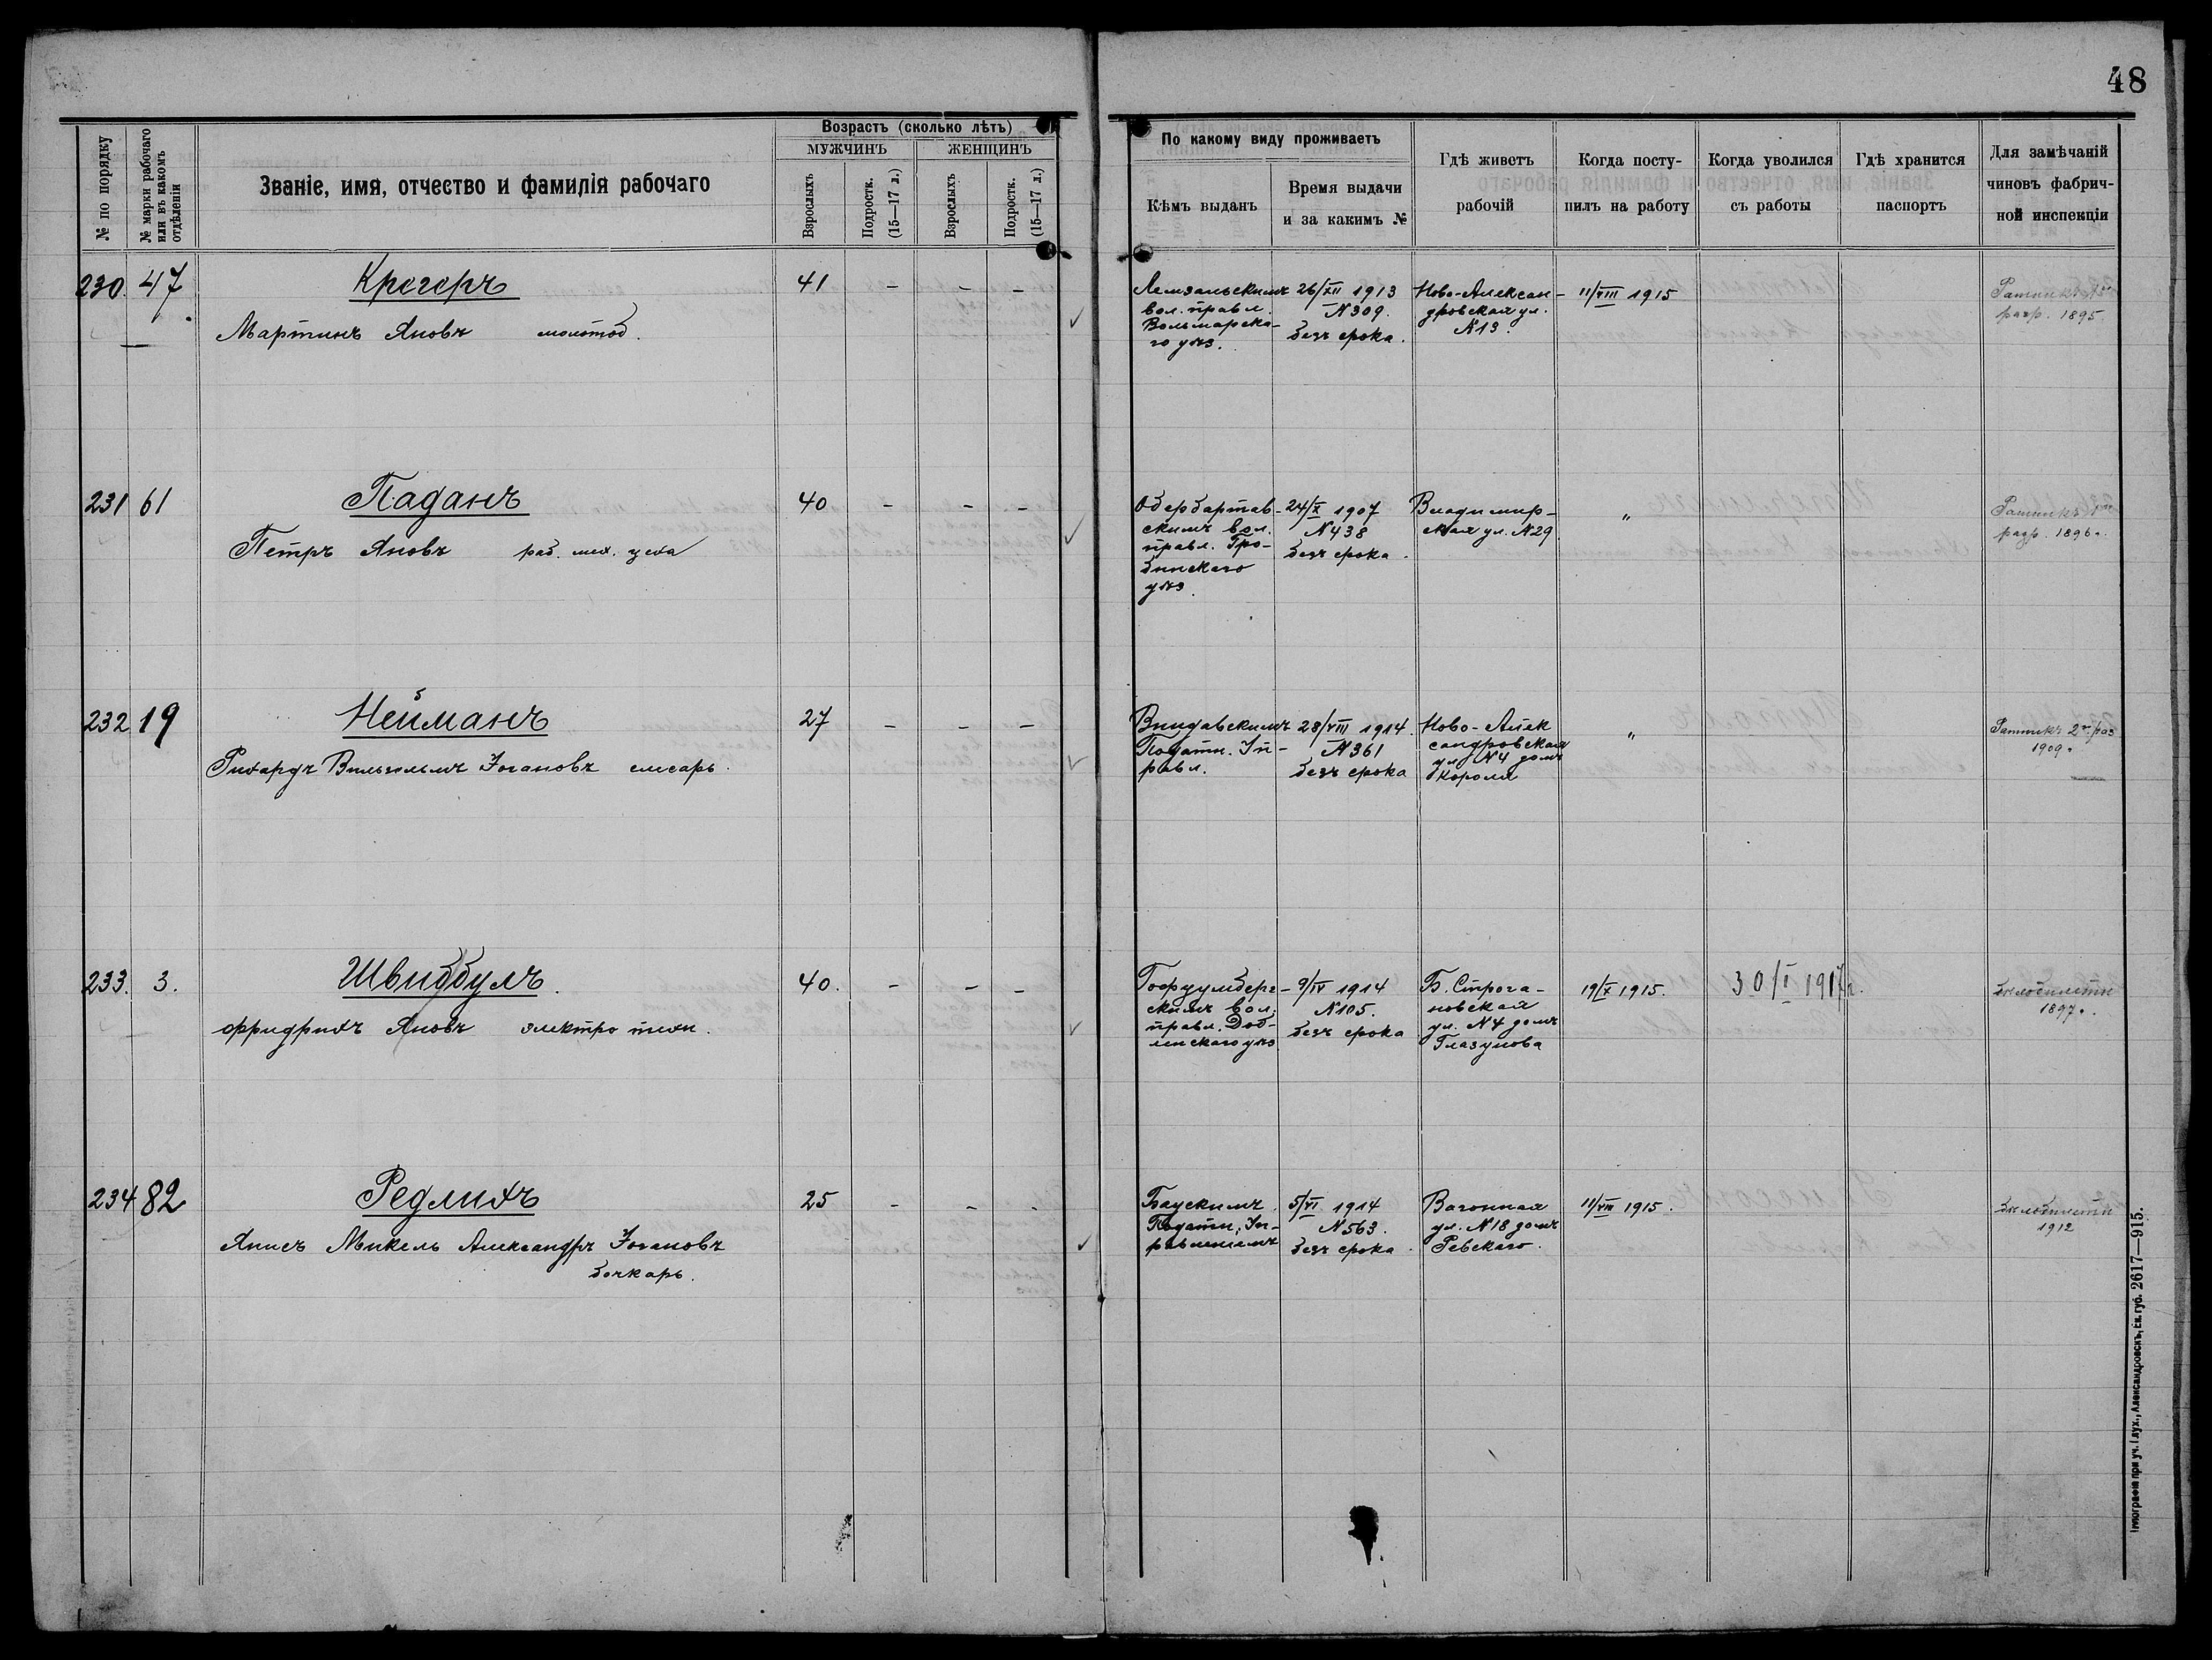 48
№ по порядку
№ марки рабочаго
или въ какомъ
отдѣленіи
Званіе, имя, отчество и фамилія рабочаго
Возрастъ (сколько лѣтъ)
МУЖЧИНЪ
ЖЕНЩИНЪ
Взрослыхъ
Подростк.
(15—17 л.)
Взрослыхъ
Подростк.
(15—17 л.)
По какому виду проживаетъ
Кѣмъ выданъ
Время выдачи
и за какимъ №
Гдѣ живетъ
рабочій
Когда посту-
пилъ на работу
Когда уволился
съ работы
Гдѣ хранится
паспортъ
Для замѣчаній
чиновъ фабрич-
ной инспекціи
230. 47
Крегеръ
Мартинъ Яновъ молотоб.
41 – – –
Лемзальскимъ
вол. правл.
Вольмарска-
го уѣз.
26/XII 1913
№309.
безъ срока.
Ново-Алексан-
дровская ул.
№13.
11/VIII 1915
Ратникъ
разр. 1895.
231 61
Паданъ
Петръ Яновъ раб. мех. цеха
40 – – –
Обербартав-
скимъ вол.
правл. Гро-
бинскаго
уѣз.
24/X 1907
№438
безъ срока.
Владимир-
ская ул. №29
"
Ратникъ
разр. 1896.
232 19
Нейманъ
Рихардъ Вильгельмъ Іогановъ слесарь.
27 – – –
Виндавскимъ
Податн. Уп-
равл.
28/VIII 1914.
№361
безъ срока
Ново-Алек
сандровская
ул. №4 домъ
Короля
"
Ратникъ 2го раз
1909.
233. 3.
Швиббулъ.
Фридрихъ Яновъ электротехн.
40. – – –
Гофцумберг-
скимъ вол.
правл. Доб-
ленскаго уѣз
9/IV 1914
№105.
безъ срока
Б. Строга-
новская
ул. №4 домъ
Глазунова
19/X 1915.
30/I 1917г.
бѣлобилетн
1897.
234 82
Редлихъ
Янисъ Микель Александръ Іогановъ
бочкарь.
25 – – -
Баускимъ
Податн. Уп-
равленіемъ
5/VI 1914
№563.
безъ срока.
Вагонная
ул. №18 домъ
Ревскаго.
11/VIII 1915.
бѣлобилетн
1912
Типографія при уч. Глух., Александровскъ, Ек. губ. 2617—915.